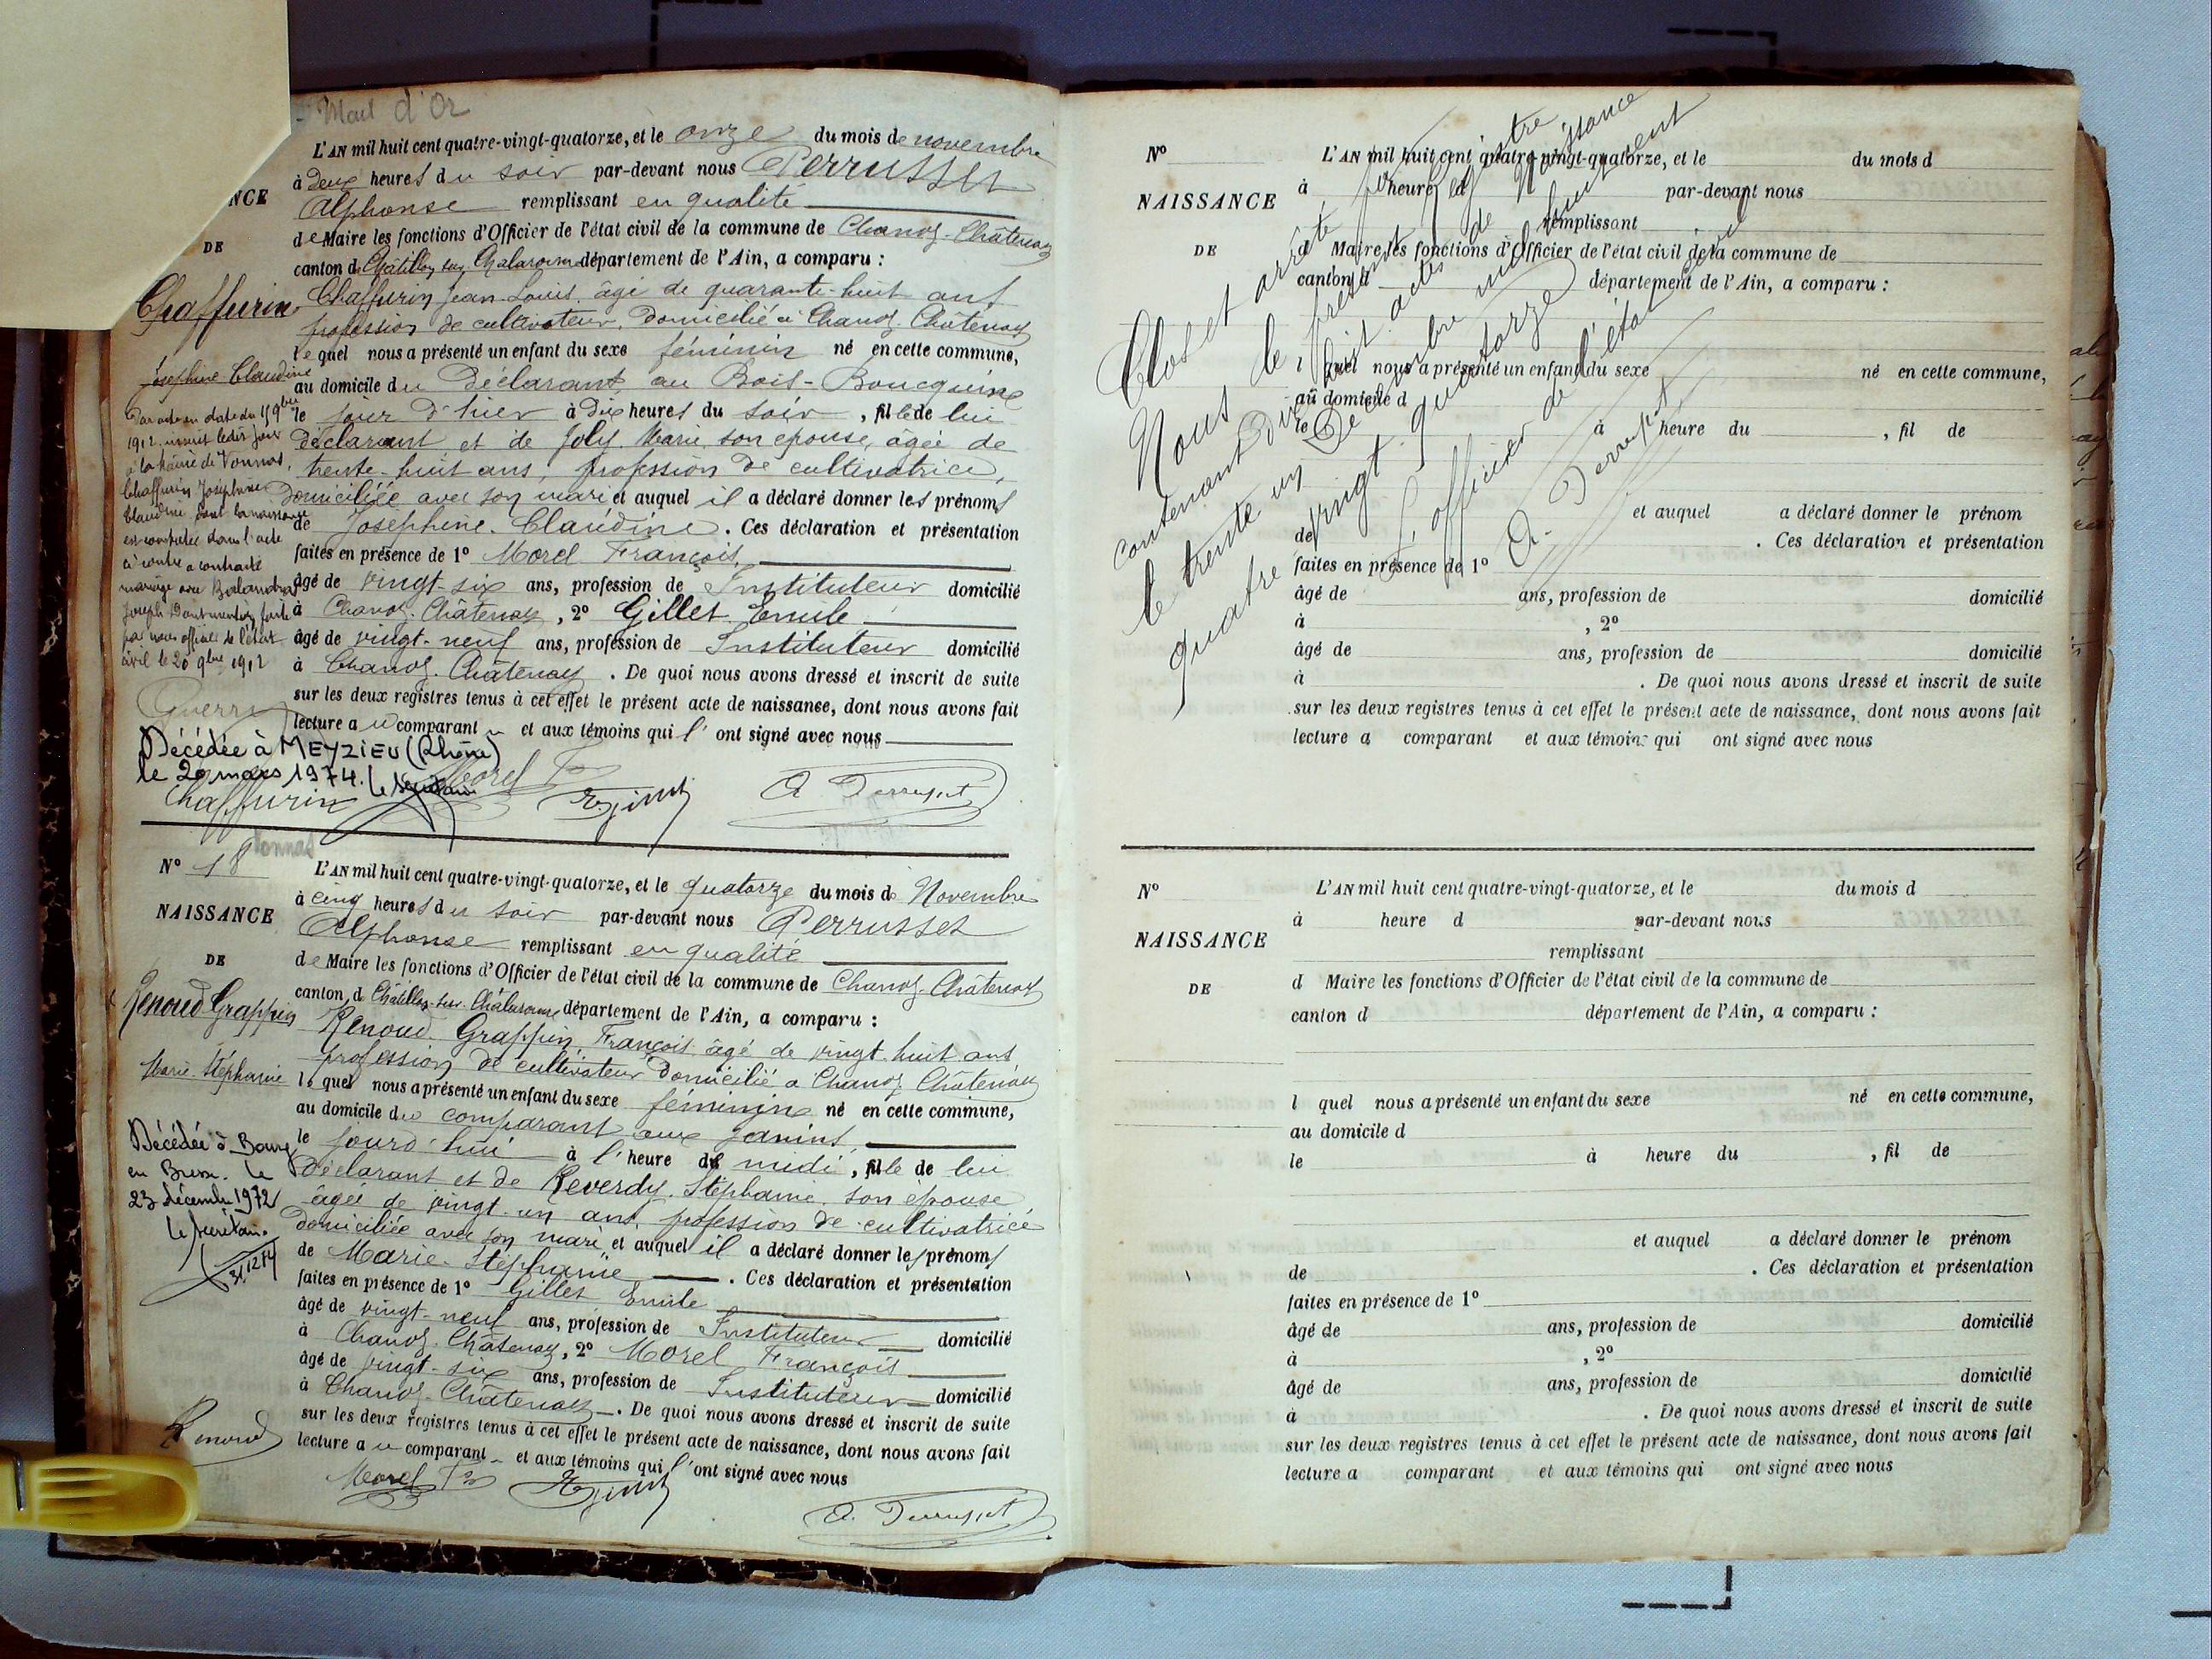 Mort d'Or
L'AN mil huit cent quatre-vingt-quatorze, et le onze du mois de novembre
à deux heures du soir par-devant nous Perrusset
NCE
Alphonse remplissant en qualité
DE
de Maire les fonctions d'Officier de l'état civil de la commune de Chanoz-Châtenay
canton de Châtillon sur Chalaronne département de l'Ain, a comparu :
Chaffurin
Chaffurin Jean-Louis, âgé de quarante-huit ans
profession de cultivateur, domicilié à Chanoz-Châtenay
lequel nous a présenté un enfant du sexe féminin né en cette commune,
Joséphine Claudine
au domicile du Déclarant, au Bois-Boucquin
le jour d'hier à dix heures du soir, fille de lui
déclarant et de Joly Marie son épouse, âgée de
trente-huit ans, profession de cultivatrice,
domiciliée avec son mari et auquel il a déclaré donner les prénoms
de Joséphine-Claudine. Ces déclaration et présentation
faites en présence de 1° Morel François,
âgé de vingt-six ans, profession de Instituteur domicilié
à Chanoz-Châtenay, 2° Gillet Emile
âgé de vingt-neuf ans, profession de Instituteur domicilié
à Chanoz-Châtenay. De quoi nous avons dressé et inscrit de suite
sur les deux registres tenus à cet effet le présent acte de naissance, dont nous avons fait
lecture au comparant et aux témoins qui l'ont signé avec nous
Par acte en date du 19 9bre
1912 inscrit ledit jour
à la mairie de Vonnas,
Chaffurin Joséphine
Claudine dont la naissance
est constatée dans l'acte
ci-contre a contracté
mariage avec
Joseph. Dont mention faite
par nous officier de l'état
civil le 20 9bre 1912
Décédée à MEYZIEU (Rhône)
le 20 mars 1974. Le Secrétaire
Chaffurin Morel F E. Gillet A Perrusset
Vonnas
N° 18
L'AN mil huit cent quatre-vingt-quatorze, et le quatorze du mois de Novembre
à cinq heures du soir par-devant nous Perrusset
NAISSANCE
Alphonse remplissant en qualité
DE
de Maire les fonctions d'Officier de l'état civil de la commune de Chanoz-Châtenay
canton de Châtillon-sur-Chalaronne département de l'Ain, a comparu :
Renoud Grappin
Renoud-Grappin, François âgé de vingt-huit ans
profession de cultivateur domicilié à Chanoz-Châtenay
Marie-Stéphanie
lequel nous a présenté un enfant du sexe féminin né en cette commune,
au domicile du comparant aux Janins
le jourd'hui à l'heure de midi, fille de lui
déclarant et de Reverdy Stéphanie son épouse
âgée de vingt-un ans, profession de cultivatrice
domiciliée avec son mari et auquel il a déclaré donner les prénoms
de Marie-Stéphanie. Ces déclaration et présentation
faites en présence de 1° Gillet Emile
âgé de vingt-neuf ans, profession de Instituteur domicilié
à Chanoz-Châtenay, 2° Morel François
âgé de vingt-six ans, profession de Instituteur domicilié
à Chanoz-Châtenay. De quoi nous avons dressé et inscrit de suite
sur les deux registres tenus à cet effet le présent acte de naissance, dont nous avons fait
lecture au comparant et aux témoins qui l'ont signé avec nous
Décédée à Bourg
en Bresse. le
23 décembre 1972
Le secrétaire
Renoud
Morel F E. Gillet
A. Perrusset
Clos et arrêté par
Nous le présent registre
contenant dix huit actes de Naissance
le trente un Décembre mil huit cent
quatre vingt quatorze
L'officier de l'état civil
A. Perrusset
N°
L'AN mil huit cent quatre-vingt-quatorze, et le du mois d
à heure d par-devant nous
NAISSANCE
remplissant
DE
d Maire les fonctions d'Officier de l'état civil de la commune de
canton d département de l'Ain, a comparu :
l quel nous a présenté un enfant du sexe né en cette commune,
au domicile d
le à heure du , fil de
et auquel a déclaré donner le prénom
de . Ces déclaration et présentation
faites en présence de 1°
âgé de ans, profession de domicilié
à , 2°
âgé de ans, profession de domicilié
à . De quoi nous avons dressé et inscrit de suite
sur les deux registres tenus à cet effet le présent acte de naissance, dont nous avons fait
lecture a comparant et aux témoins qui ont signé avec nous
N°
L'AN mil huit cent quatre-vingt-quatorze, et le du mois d
à heure d par-devant nous
NAISSANCE
remplissant
DE
d Maire les fonctions d'Officier de l'état civil de la commune de
canton d département de l'Ain, a comparu :
l quel nous a présenté un enfant du sexe né en cette commune,
au domicile d
le à heure du , fil de
et auquel a déclaré donner le prénom
de . Ces déclaration et présentation
faites en présence de 1°
âgé de ans, profession de domicilié
à , 2°
âgé de ans, profession de domicilié
à . De quoi nous avons dressé et inscrit de suite
sur les deux registres tenus à cet effet le présent acte de naissance, dont nous avons fait
lecture a comparant et aux témoins qui ont signé avec nous